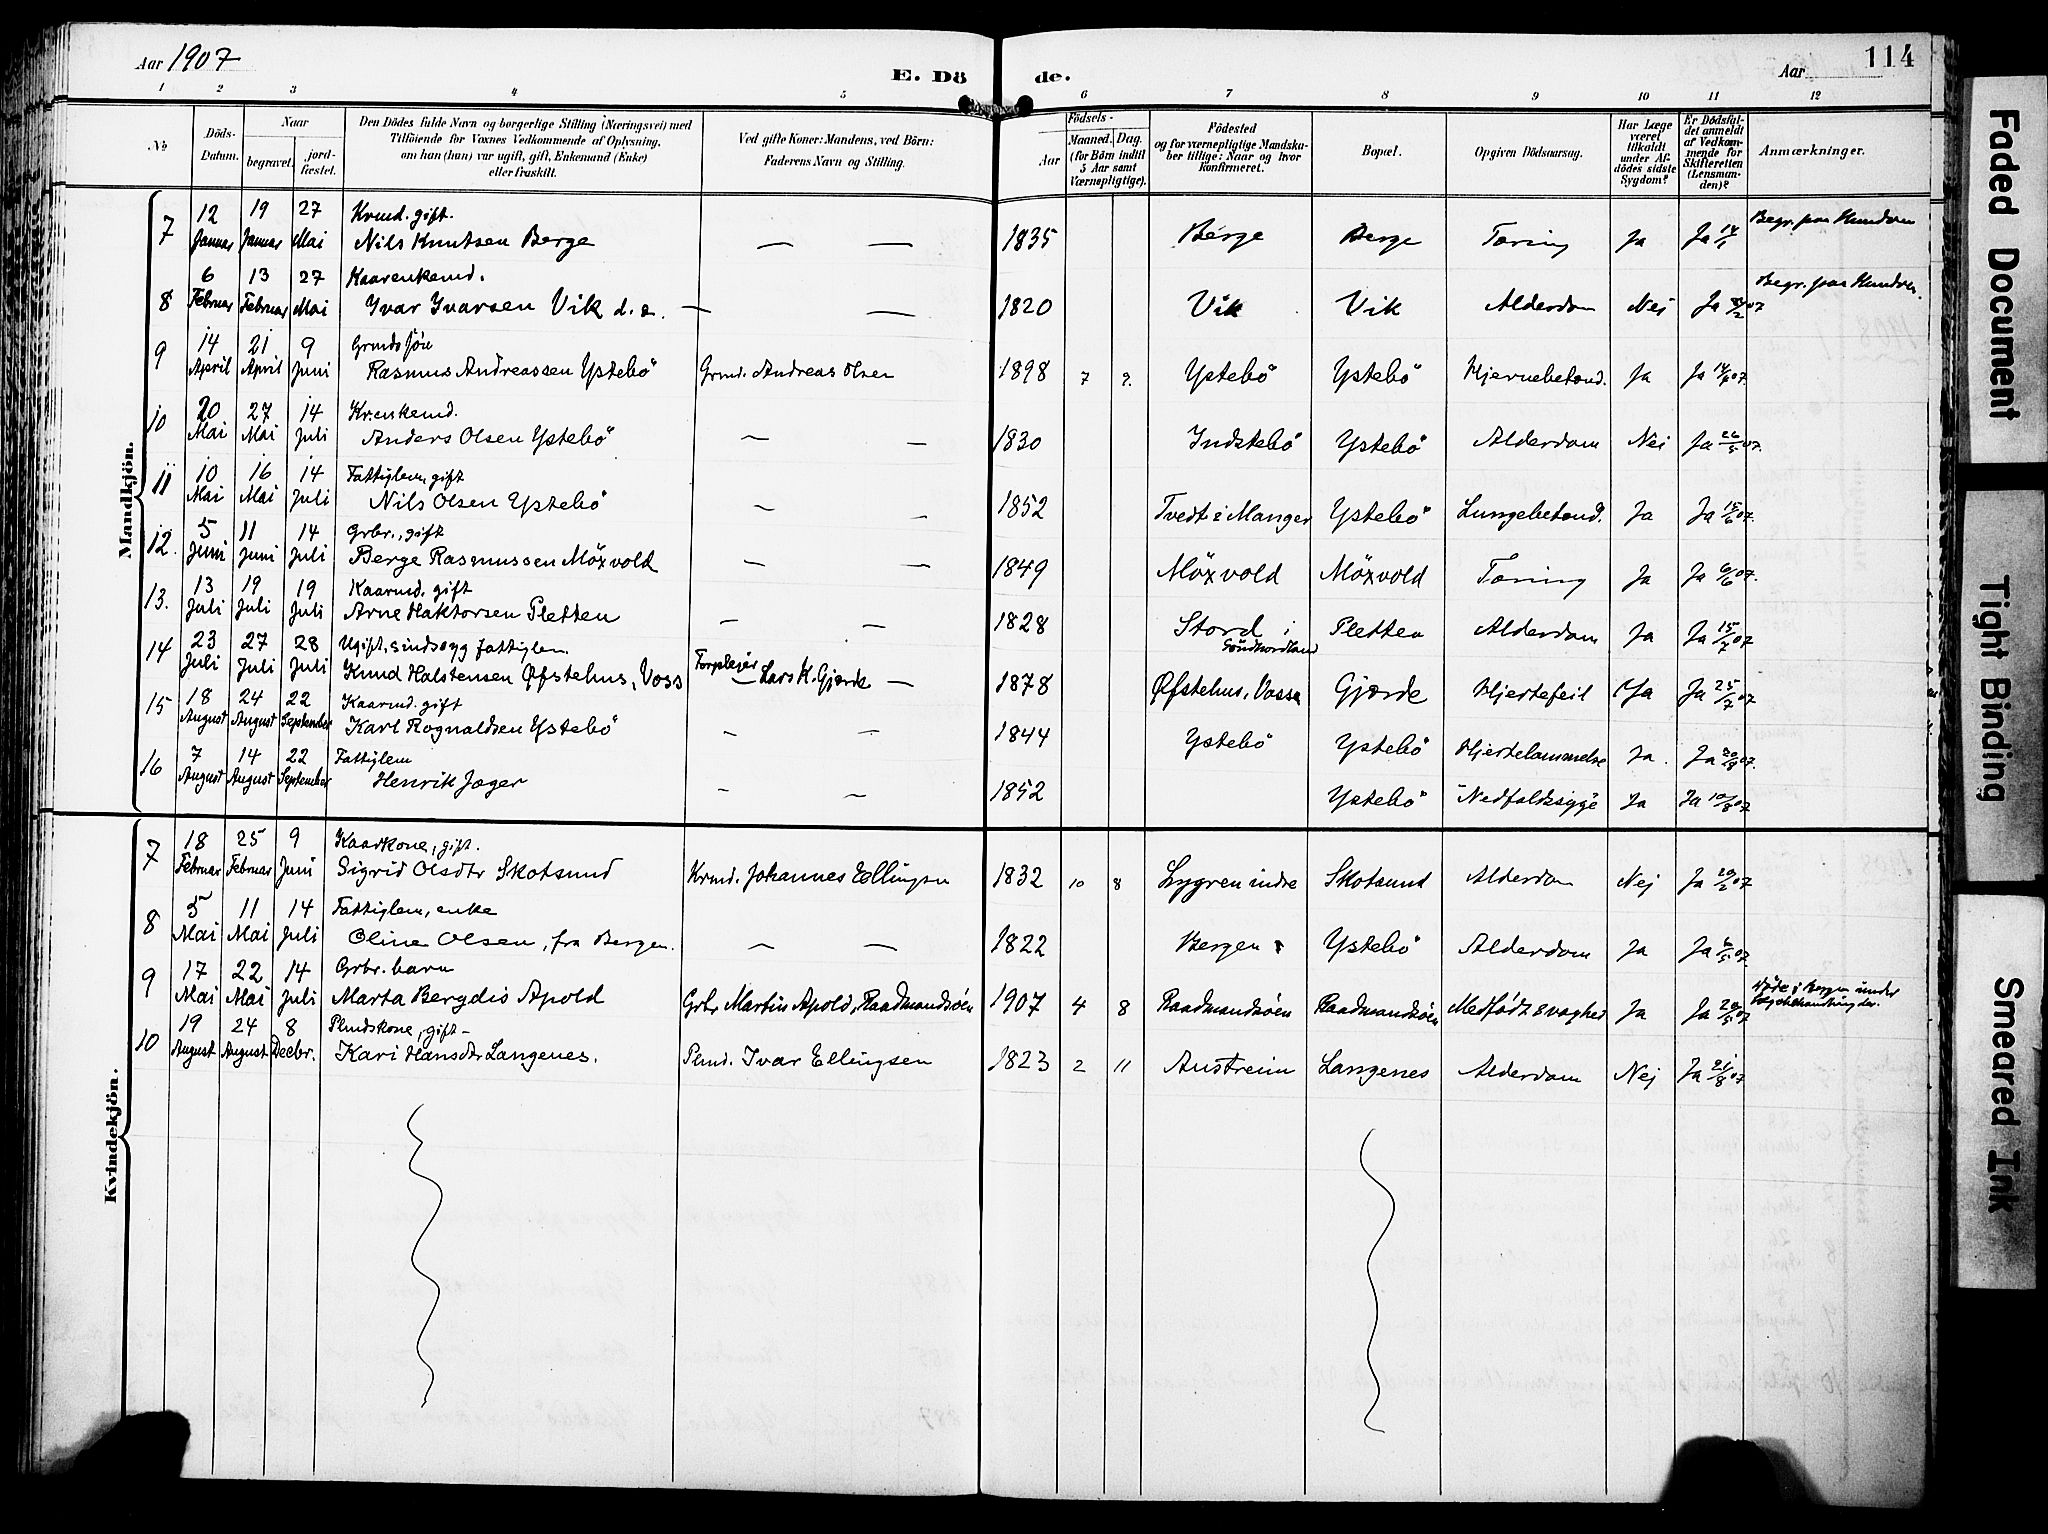 Aar 1907
E. Dö
de.
Aar
114
1 2 3 4 5 6 7 8 9 10 11 12
No
Döds-Datum.
Naar
begravet.
jord-fæstet.
Den Dödes fulde Navn og borgerlige Stilling (Næringsvei) med
Tilföiende for Voxnes Vedkommende af Oplysning,
om han (hun) var ugift, gift, Enkemand (Enke)
eller fraskilt.
Ved gifte Koner: Mandens, ved Börn:
Faderens Navn og Stilling.
Födsels-
Aar
Maaned. Dag.
(for Börn indtil
5 Aar samt
Værnepligtige).
Födested
og for værnepligtige Mandska-
ber tillige: Naar og hvor
Konfirmeret.
Bopæl.
Opgiven Dödsaarsag.
Har Læge
været
tilkaldt
under Af-
dödes sidste
Sygdom?
Er Dödsfal-
det anmeldt
af Vedkom-
mende for
Skifteretten
(Lensman-
den)?
Anmærkninger.
Mandkjön.
7 12 Januar 19 Januar 27 Mai Krmd. gift. Nils Knutsen Berge — — 1835 Berge Berge Tæring Ja Ja 14/1 Begr. paa Hundven
8 6 Februar 13 Februar 27 Mai Kaarenkemd. Ivar Ivarsen Vik d. æ. — — 1820 Vik Vik Alderdom Nei Ja Begr. paa Hundven.
9 14 April 21 April 9 Juni Grmds sön Rasmus Andreassen Ystebö Grmd. Andreas Olsen 1898 7 9. Ystebö Ystebö Hjernebetænd. Ja Ja
10 20 Mai 27 Mai 14 Juli Kr.enkemd. Anders Olsen Ystebö — — 1830 Indstebö Ystebö Alderdom Nei Ja 26/5 07.
11 10 Mai 16 Mai 14 Juli Fattiglem, gift Nils Olsen Ystebö — — 1852 Tvedt i Manger Ystebö Lungebetænd. Ja Ja
12. 5 Juni 11 Juni 14 Juli Grbr., gift Berge Rasmussen Möxvold — — 1849 Möxvold Möxvold Tæring Ja Ja 6/6 07.
13. 13 Juli 19 Juli 19 Juli Kaarmd. gift Arne Haktorsen Pletten — — 1828 Stord i Söndhordland Pletten Alderdom Ja Ja 15/7 07
14 23 Juli 27 Juli 28 Juli Ugift, sindssyg fattiglem. Knud Halstensen Øfstehus, Voss Forpleier — Lars K. Gjerde — 1878 Øfstehus, Voss Gjerde Hjertefeil Ja Ja 25/7 07
15 18 August 24 August 22 September Kaarmd. gift Karl Rognaldsen Ystebö — — 1844 Ystebö Ystebö Hjertelammelse Ja. Ja 20/8 07.
16 7 August 14 August 22 September Fattiglem Henrik Jæger — — 1852 Ystebö Nedfaldssyge Ja Ja 10/8 07
Kvindekjön.
7 18 Februar 25 Februar 9 Juni Kaarkone, gift. Sigrid Olsdtr Skotsund Krmd. Johannes Ellingsen 1832 10 8 Lygren indre Skotsund Alderdom Nej Ja 20/2 07
8 5 Mai 11 Mai 14 Juli Fattiglem, enke Oline Olsen, fra Bergen. — — 1822 Bergen Ystebö Alderdom Ja Ja 6/5 07.
9 17 Mai 22 Mai 14 Juli Grbr. barn Marta Bergdis Apold Grbr Martin Apold, Raadmandsöen 1907 4 8 Raadmandsöen Raadmandsöen Medfödt svaghed Ja Ja 20/5 07 Döde i Bergen under lægebehandling der.
10 19 August 24 August 8 Decbr. Plmdskone, gift — Kari Hansdtr Langenes. Plmd. Ivar Ellingsen 1823 2 11 Austreim Langenes Alderdom Nej Ja 21/8 07
Faded Document
Tight Binding
Smeared Ink